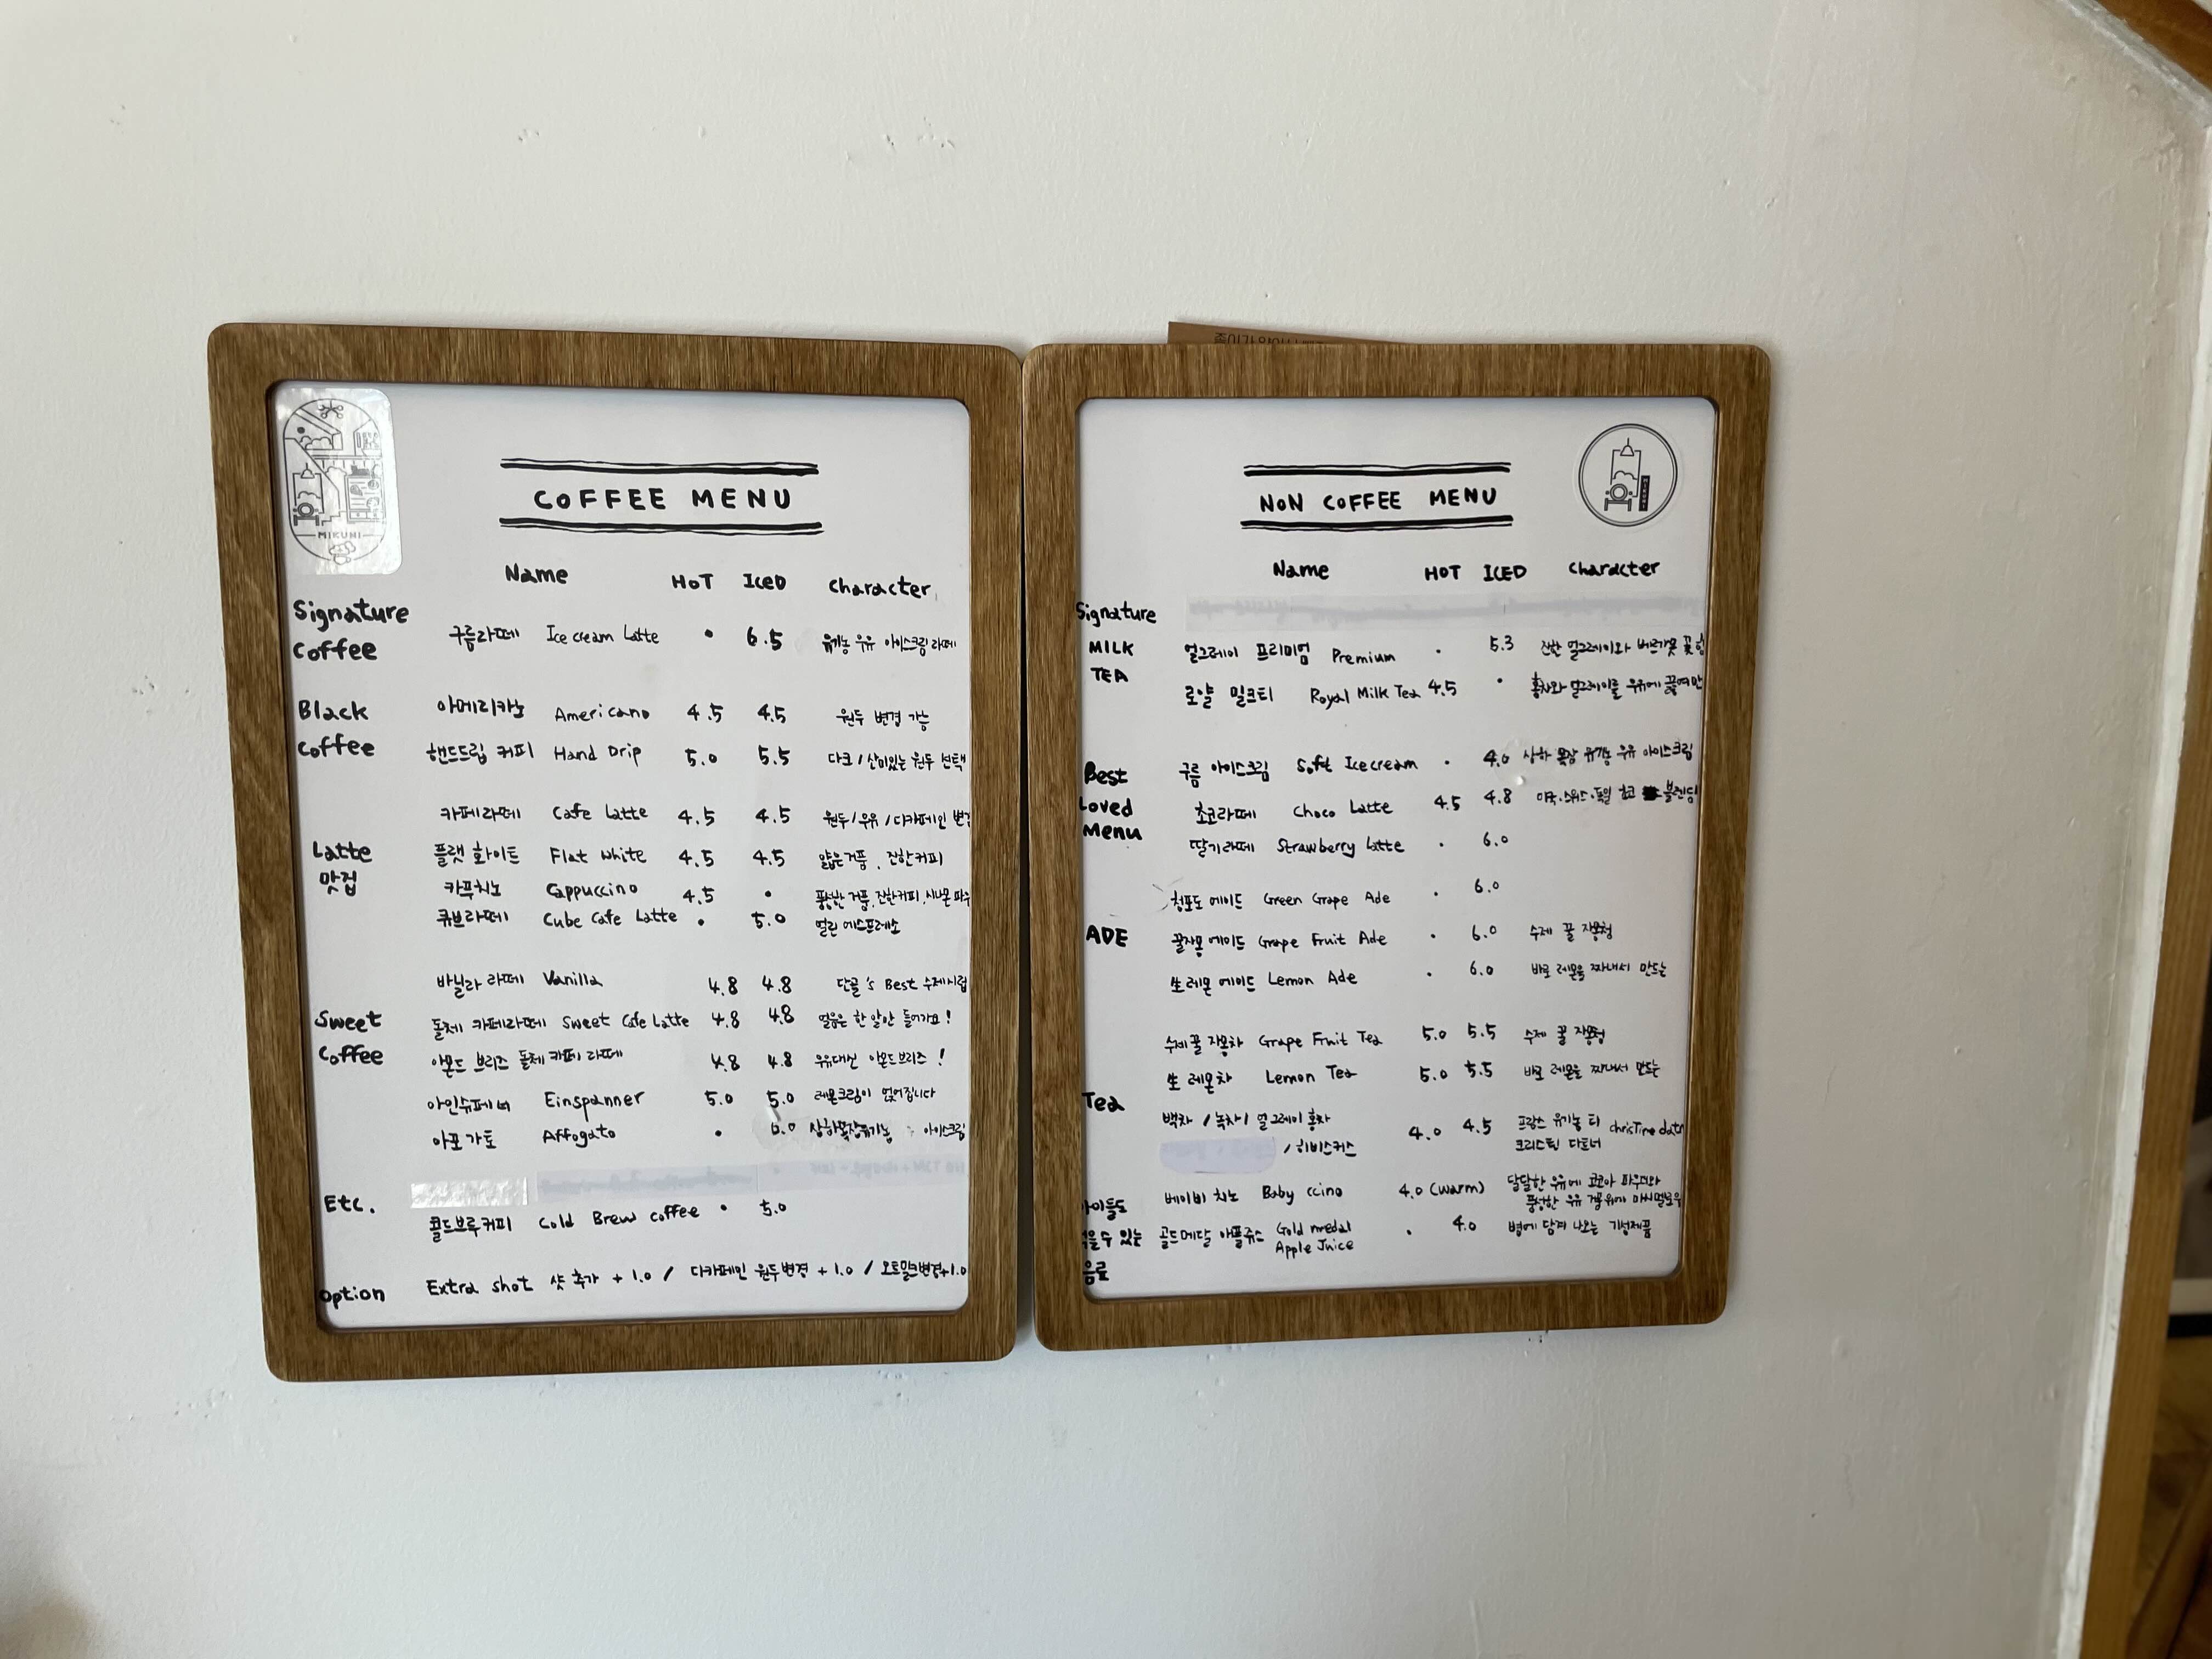 MIKUNI
COFFEE MENU
Name HOT ICED Character
Signature
Coffee
구름라떼 Ice cream Latte • 6.5 유기농 우유 아이스크림 라떼
Black
Coffee
아메리카노 Americano 4.5 4.5 원두 변경 가능
핸드드립 커피 Hand Drip 5.0 5.5 다크 / 산미있는 원두 선택
Latte
맛집
카페라떼 Cafe Latte 4.5 4.5 원두 / 우유 / 디카페인 변경
플랫 화이트 Flat White 4.5 4.5 얇은거품, 진한커피
카푸치노 Cappuccino 4.5 • 풍성한 거품, 진한커피, 시나몬 파우
큐브라떼 Cube Cafe Latte • 5.0 얼린 에스프레소
Sweet
Coffee
바닐라 라떼 Vanilla 4.8 4.8 단골's Best 수제시럽
돌체 카페라떼 Sweet Cafe Latte 4.8 4.8 얼음은 한 알만 들어가요!
아몬드 브리즈 돌체 카페 라떼 4.8 4.8 우유대신 아몬드브리즈!
아인슈페너 Einspanner 5.0 5.0 레몬크림이 얹어집니다
아포가토 Affogato • 6.0 상하목장유기농 아이스크림
Etc.
콜드브루커피 Cold Brew coffee • 5.0
option Extra shot 샷 추가 + 1.0 / 디카페인 원두변경 + 1.0 / 오트밀크변경+1.0
NON COFFEE MENU
Name HOT ICED Character
Signature
MILK
TEA
얼그레이 프리미엄 Premium • 5.3 진한 얼그레이와 버르가못 꽃향
로얄 밀크티 Royal Milk Tea 4.5 • 홍차와 얼그레이를 우유에 끓여만
Best
Loved
Menu
구름 아이스크림 Soft Icecream • 4.0 상하 목장 유기농 우유 아이스크림
초코라떼 Choco Latte 4.5 4.8 미국·스위스·독일 초코 블렌딩
딸기라떼 Strawberry Latte • 6.0
ADE
청포도 에이드 Green Grape Ade • 6.0
꿀자몽 에이드 Grape Fruit Ade • 6.0 수제 꿀 자몽청
生 레몬 에이드 Lemon Ade • 6.0 바로 레몬을 짜내서 만드는
Tea
수제꿀 자몽차 Grape Fruit Tea 5.0 5.5 수제 꿀 자몽청
生 레몬차 Lemon Tea 5.0 5.5 바로 레몬을 짜내서 만드는
백차 / 녹차 / 얼그레이 홍차
/ 히비스커스 4.0 4.5 프랑스 유기농 티 christine datt
크리스틴 다트너
아이들도
먹을수 있는
음료
베이비 치노 Baby ccino 4.0 (warm) 달달한 우유에 코코아 파우더와
풍성한 우유 거품위에 마시멜로우
골드메달 아플쥬스 Gold medal
Apple Juice • 4.0 병에 담겨 나오는 기성제품